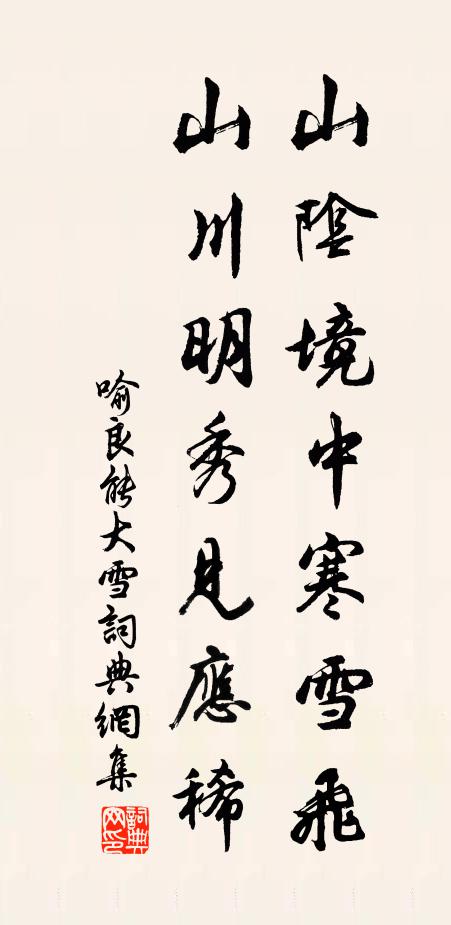 山陰境中寒雪飛
山川明秀見應稀
喻良能大雪詞典網集
詞典網印